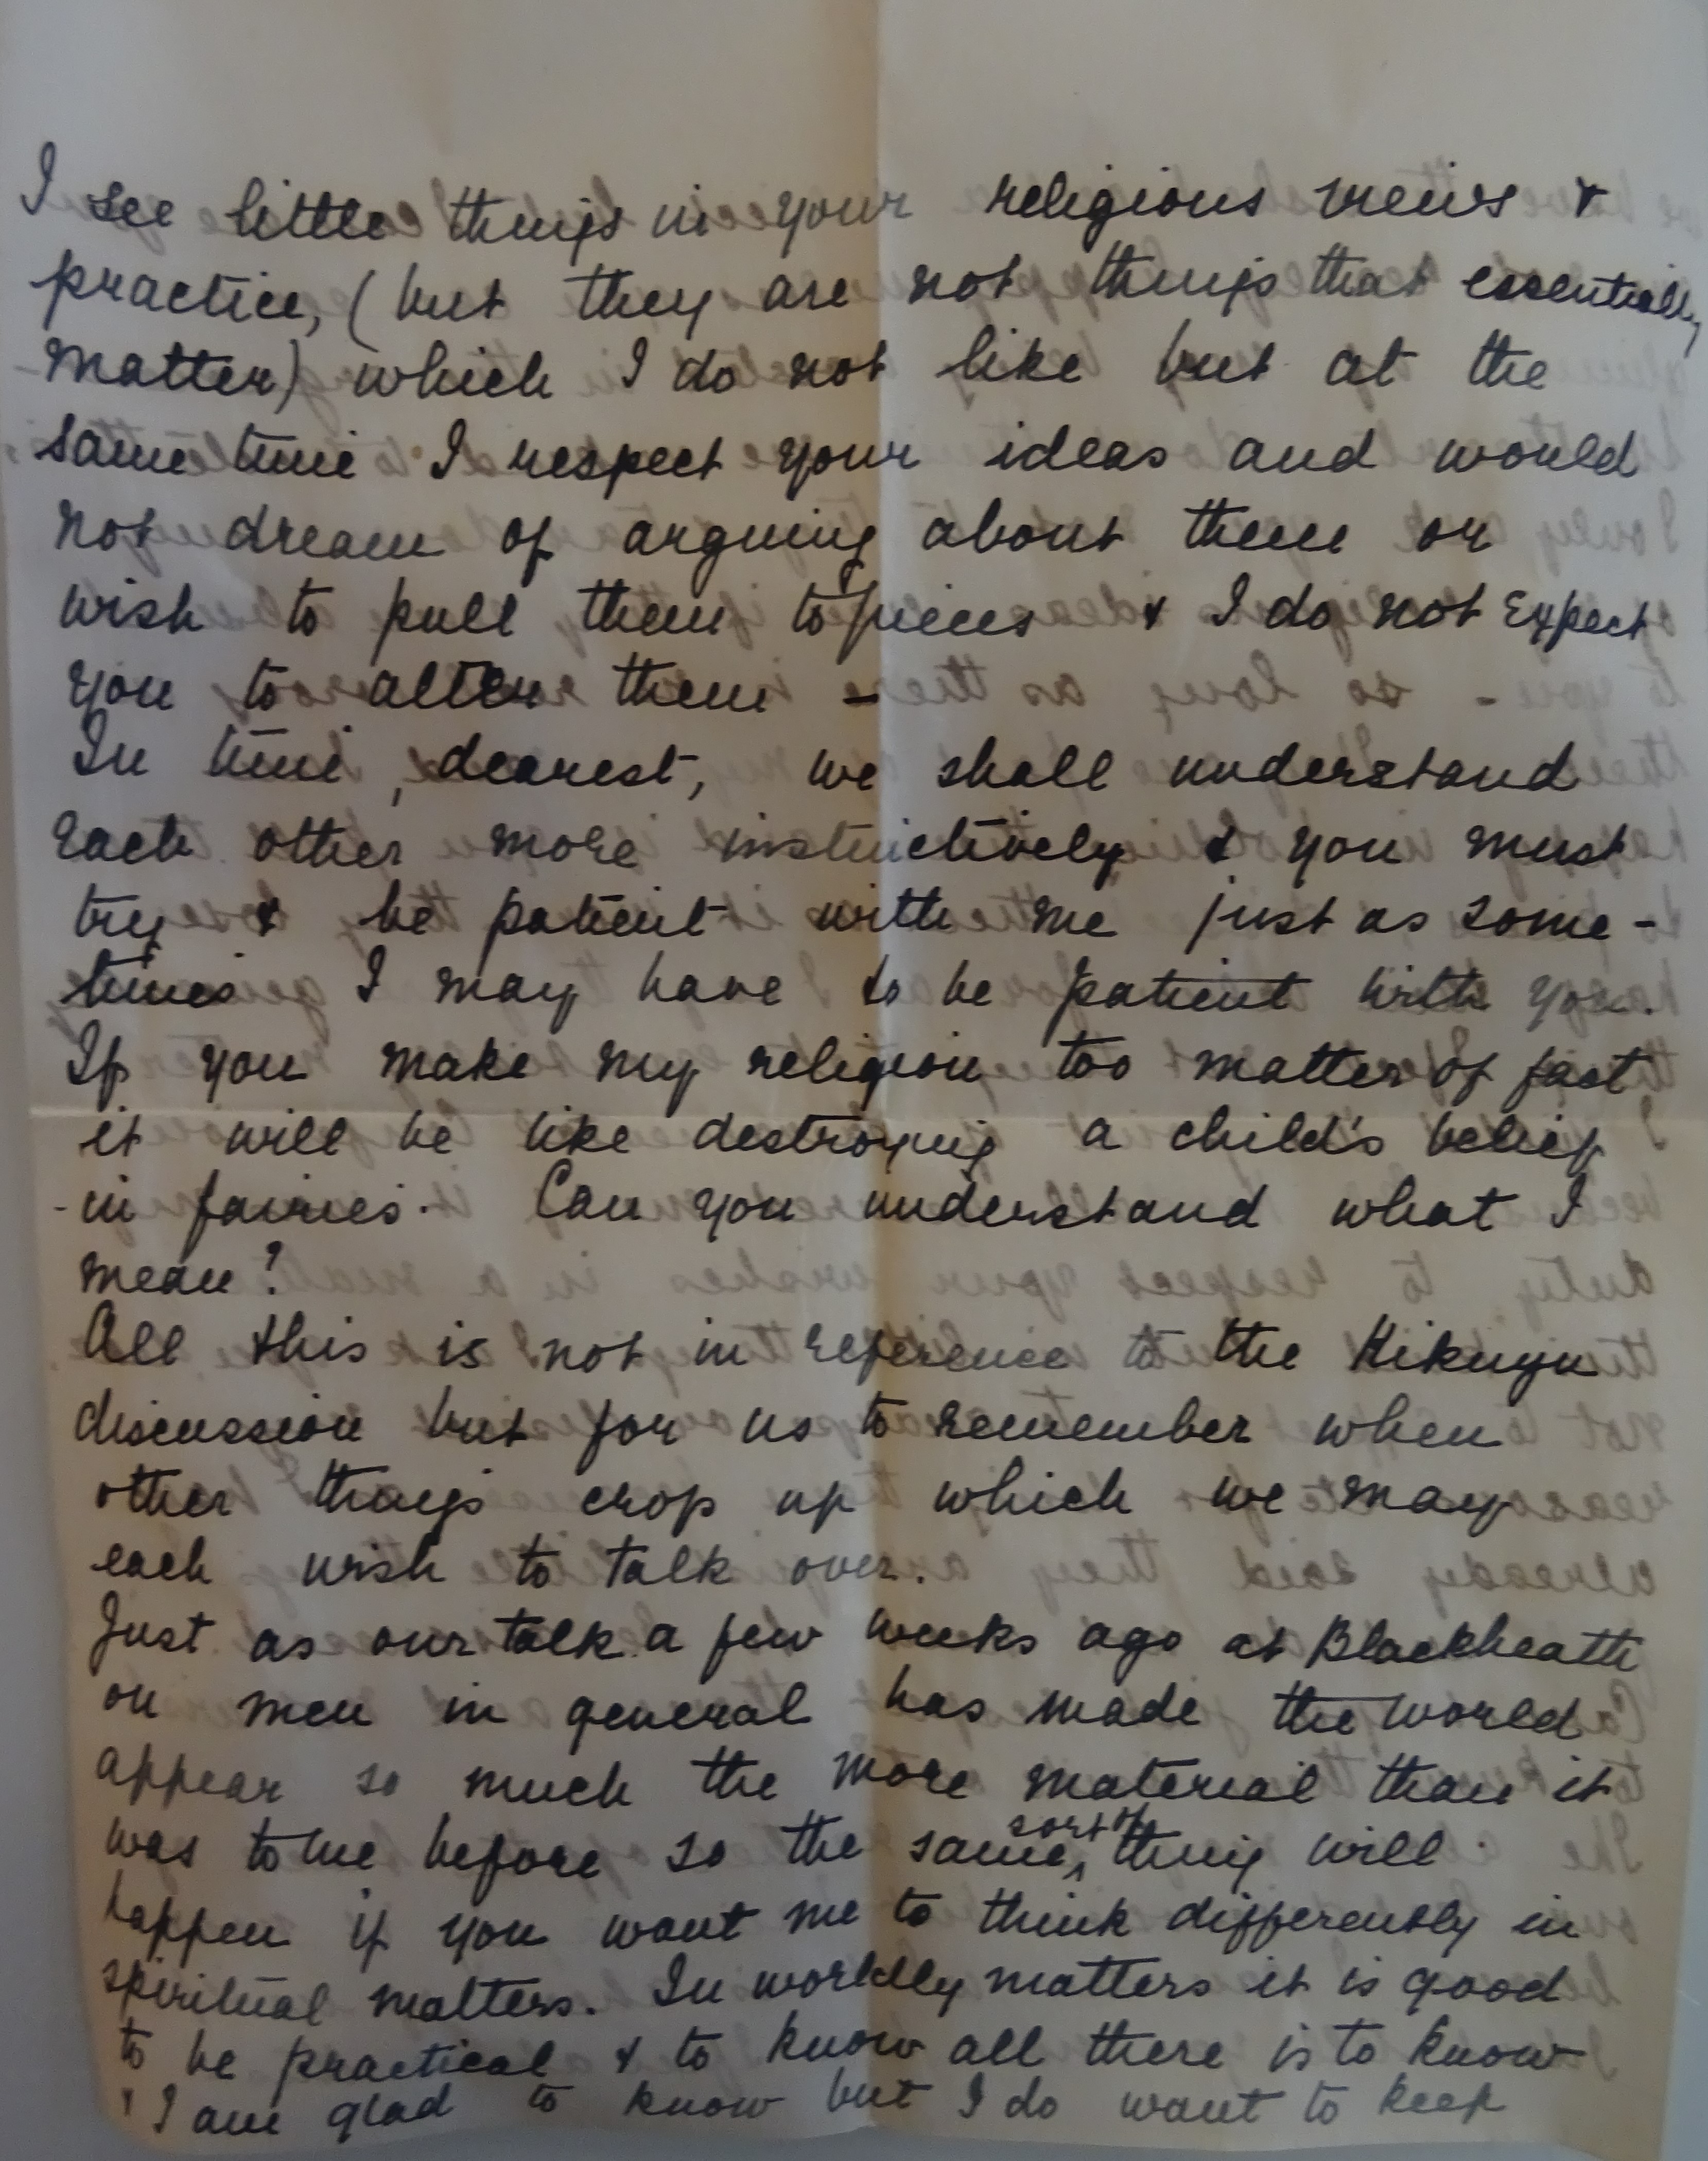 I see little things in your religious views &
practice, (but they are not things that essentially
matter) which I do not like but at the
same time I respect your ideas and would
not dream of arguing about them or
wish to pull them to pieces & I do not expect
you to alter them –
In time, dearest, we shall understand
each other more instinctively & you must
try & be patient with me just as some-
times I may have to be patient with you.
If you make my religion too matter of fact
it will be like destroying a child's belief
- in fairies. Can you understand what I
mean?
All this is not in reference to the Kikuyu
discussion but for us to remember when
other things crop up which we may
each wish to talk over.
Just as our talk a few weeks ago at Blackheath
on men in general has made the world
appear so much the more material than it
was to me before so the same sort of thing will
happen if you want me to think differently in
spiritual matters. In worldly matters it is good
to be practical & to know all there is to know
& I am glad to know but I do want to keep